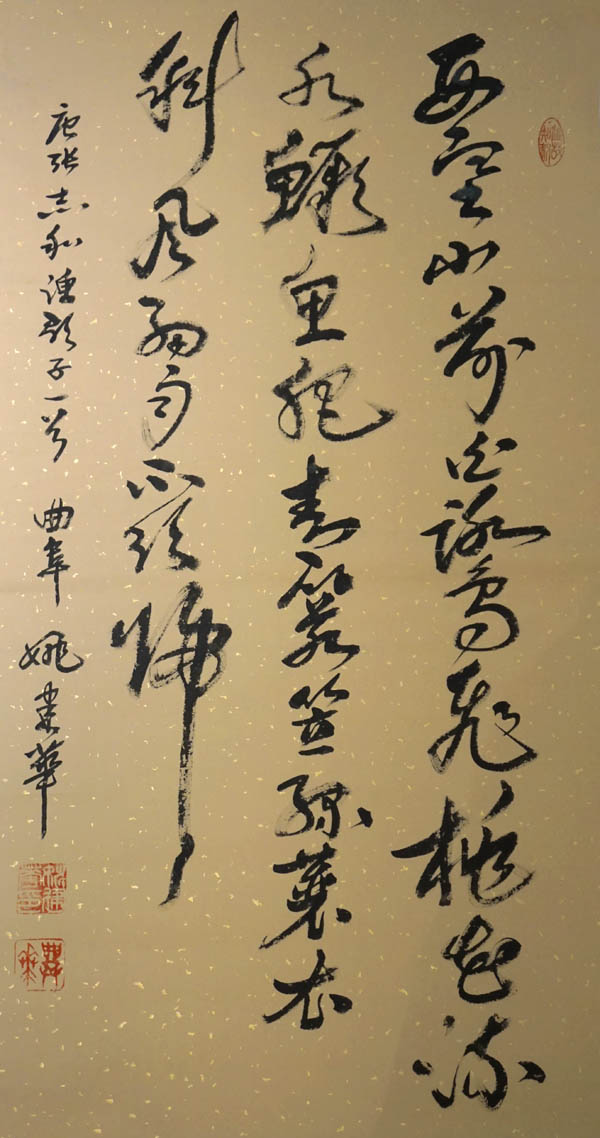 西塞山前白鹭鸟飞桃花流
水鳜鱼肥青箬笠绿蓑衣
斜风细雨不须归
唐张志和渔歌子一首 曲阜 姚 華